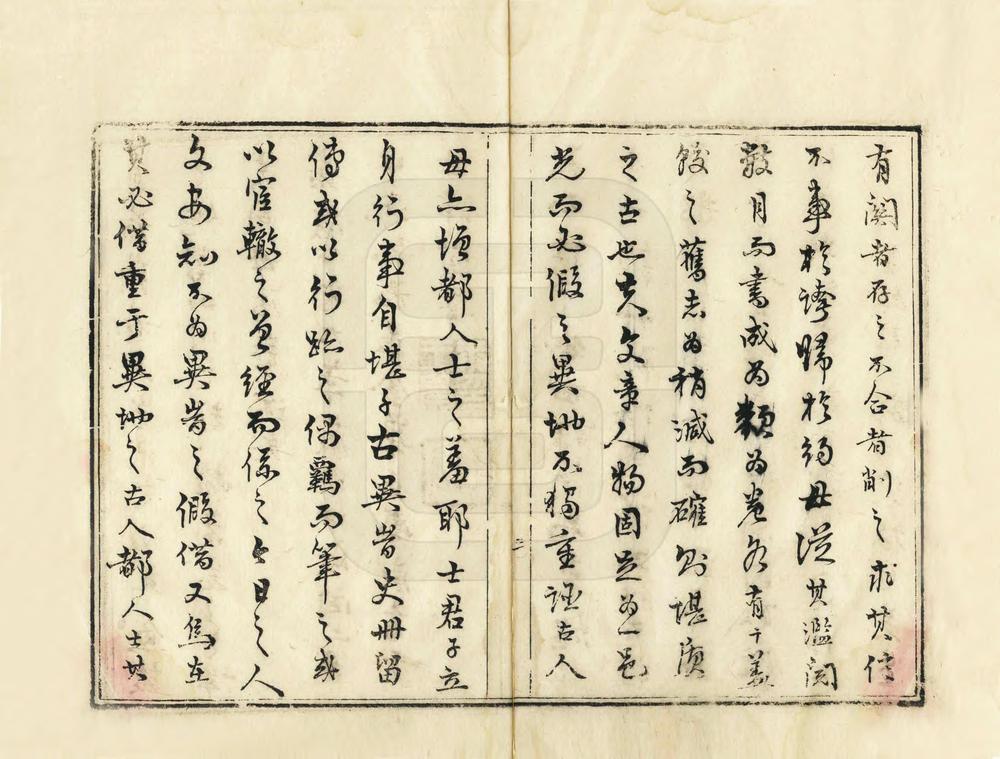 有闕者存之不合者削之求其信
不事於誇歸於約毋從其濫閱
數月而書成為類為卷各有干養
餘之舊志為稍減而確則堪
之古也夫文章人物固足為一邑
光而必假之異地不獨重誣古人
毋亦增都人士之羞耶士君子立
身行事自堪千古異時史冊留
傳或以行跡之偶羈而筆之或
以宦轍之曾經而係之今日之人
文安知不為異時之假借又焉在
其必借重于異地之古人都人士其